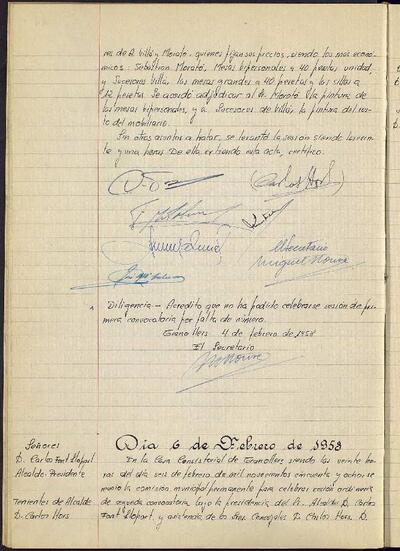 ra de D. Villa y Morató, quienes fijan sus precios, siendo los mas econo-
micos: Sebastian Morató, Mesas bipersonales a 40 pesetas unidad,
y Sucesores Villa, las mesas grandes a 40 pesetas y las sillas a
12 pesetas. Se acordó adjudicar al Sr. Morató la pintura de
las mesas bipersonales, y a Sucesores de Villa, la pintura del res-
to del mobiliario.
Sin otros asuntos a tratar, se levantó la sesion siendo las vein-
te y una horas. De ella, extiendo esta acta, certifico.
Carlos Hors
El Secretario
Miguel Moure
Diligencia.- Acredito que no ha podido celebrarse sesión de pri-
mera convocatoria por falta de número.
Granollers 4 de febrero de 1958
El Secretario
Moure
Señores
Dia 6 de Febrero de 1958
D. Carlos Font Llopart
Alcalde-Presidente
En la Casa Consistorial de Granollers siendo las veinte ho-
ras del dia seis de febrero de mil novecientos cincuenta y ocho, se
reunio la comision municipal permanente para celebrar sesión ordinaria
Tenientes de Alcalde
de segunda convocatoria bajo la presidencia del Sr. Alcalde D. Carlos
D. Carlos Hors
Font Llopart, y asistencia de los Sres. Concejales D. Carlos Hors, D.